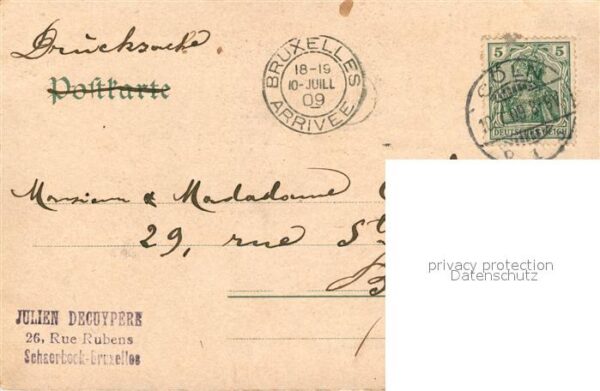 Drucksache
Postkarte
BRUXELLES
18-19
10-JUILL
09
ARRIVÉE
5 5
DEUTSCHES REICH
Monsieur & Madadame
29, rue St
B
privacy protection
Datenschutz
JULIEN DECUYPERE
26, Rue Rubens
Schaerbeek-Bruxelles